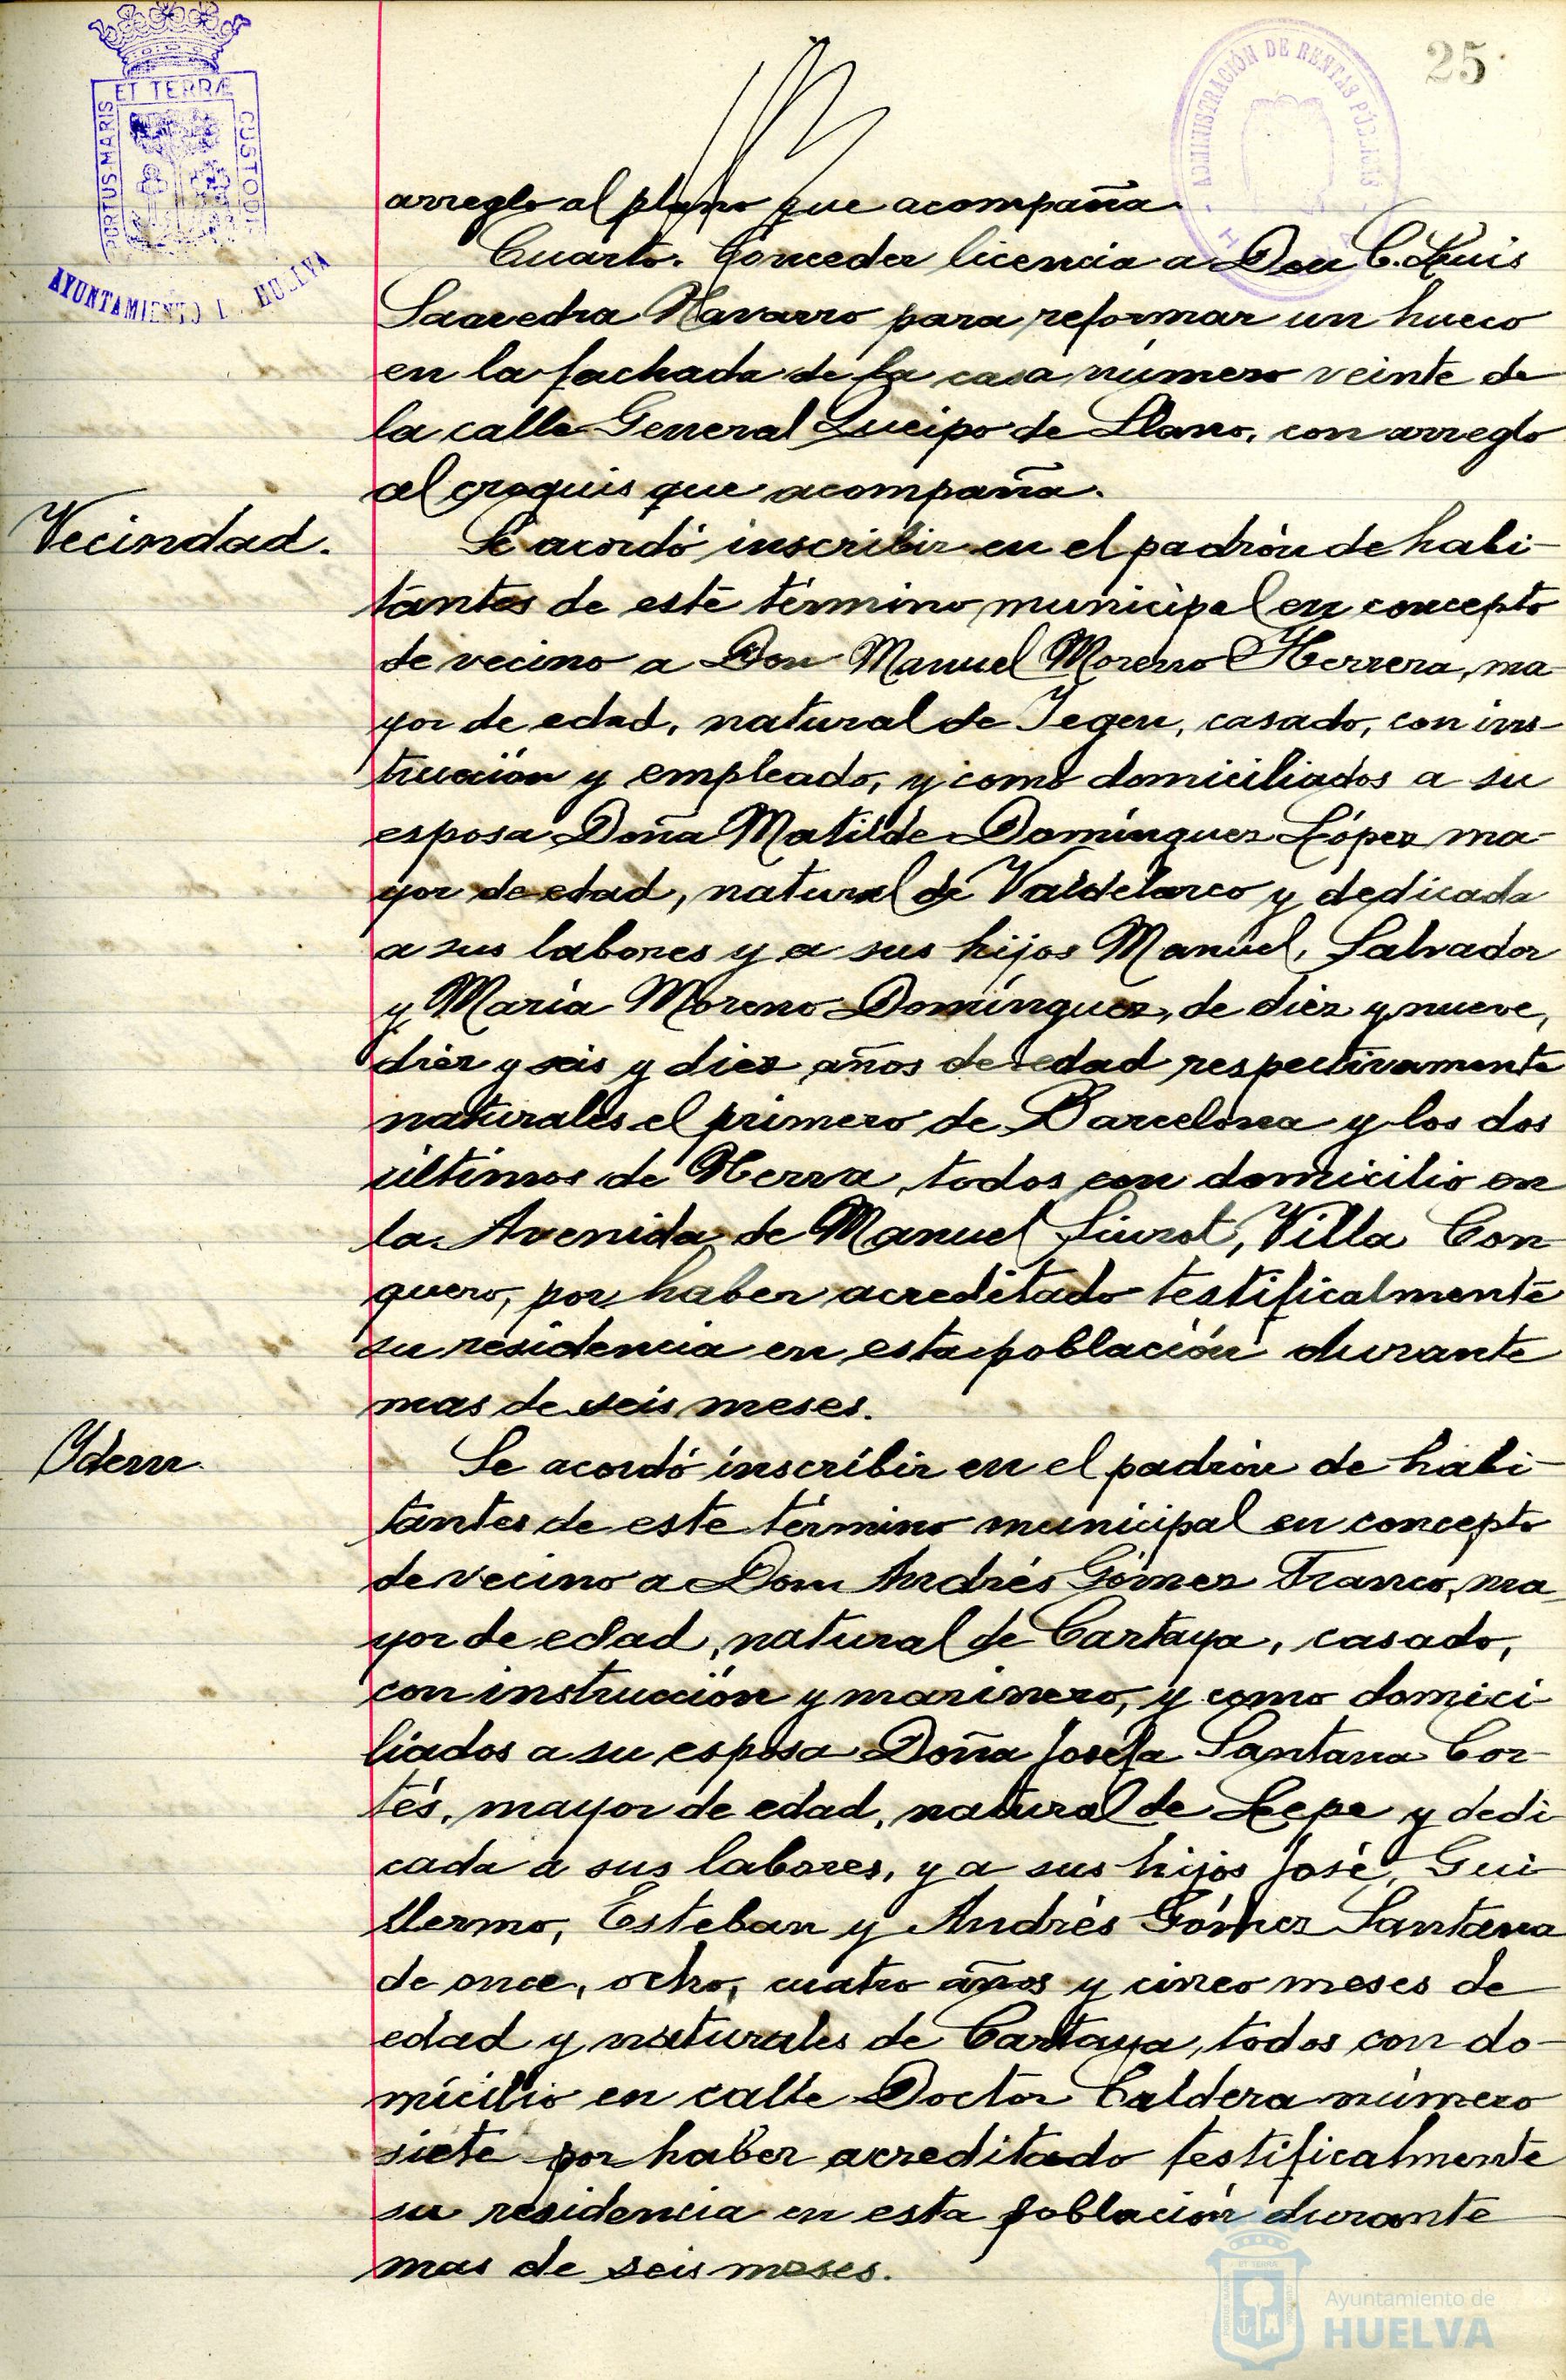 25
ET TERRÆ
PORTUS MARIS
CUSTODIA
AYUNTAMIENTO DE HUELVA
ADMINISTRACIÓN DE RENTAS PÚBLICAS
arreglo al plano que acompaña.
Cuarto. Conceder licencia a Don C. Luis
Saavedra Navarro para reformar un hueco
en la fachada de la casa número veinte de
la calle General Queipo de Llano, con arreglo
al croquis que acompaña.
Vecindad.
Se acordó inscribir en el padrón de habi-
tantes de este término municipal en concepto
de vecino a Don Manuel Moreno Herrera, ma-
yor de edad, natural de casado, con ins-
trucción y empleado, y como domiciliados a su
esposa Doña Matilde Domínguez López ma-
yor de edad, natural de Valdelarco y dedicada
a sus labores y a sus hijos Manuel, Salvador
y María Moreno Domínguez, de diez y nueve,
diez y seis y diez años de edad respectivamente
naturales el primero de Barcelona y los dos
últimos de todos con domicilio en
la Avenida de Manuel Siurot, Villa Con
quero, por haber acreditado testificalmente
su residencia en esta población durante
mas de seis meses.
Ydem.
Se acordó inscribir en el padrón de habi-
tantes de este término municipal en concepto
de vecino a Don Andrés Gómez Franco, ma-
yor de edad, natural de Cartaya, casado,
con instrucción y marinero, y como domici-
liados a su esposa Doña Josefa Santana Cor-
tés, mayor de edad, natural de Lepe y dedi-
cada a sus labores, y a sus hijos José, Gui-
llermo, Esteban y Andrés Gómez Santana
de once, ocho, cuatro años y cinco meses de
edad y naturales de Cartaya, todos con do-
micilio en calle Doctor Caldera número
siete por haber acreditado testificalmente
su residencia en esta población durante
mas de seis meses.
Ayuntamiento de
HUELVA